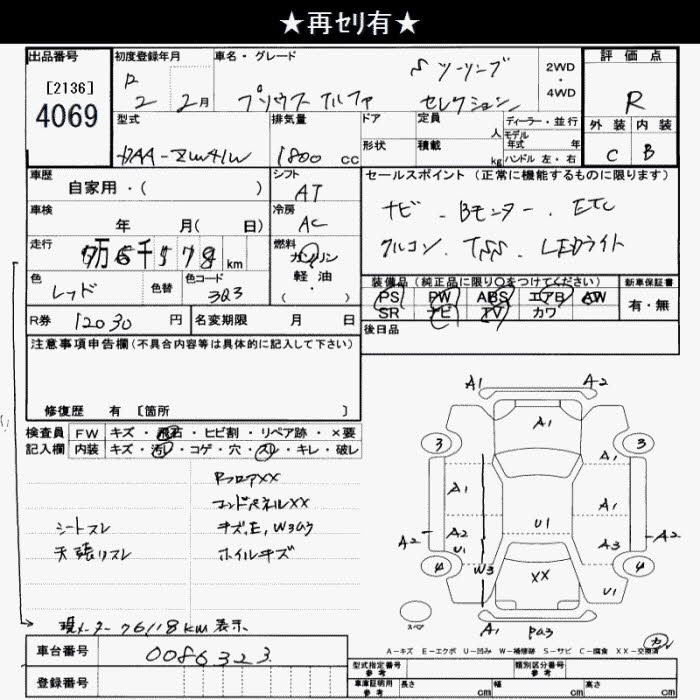 ★再ｾﾘ有★
出品番号
[2136]
4069
初度登録年月
R 2 2月
車名・グレード
Sツーリング
プリウス アルファ セレクション
2WD
・
4WD
評価点
R
外装 内装
C B
型式
DAA-ZVW41W
排気量
1800 cc
ドア
形状
定員 人
積載 kg
ディーラー・並行
モデル年式 年
ハンドル 左・右
車歴
自家用・( )
シフト
AT
車検
年 月( 日)
冷房
AC
走行
km
燃料
ガソリン
軽油・
( )
色
レッド
色替
色コード
3Q3
R券 12030 円
名変期限 月 日
セールスポイント (正常に機能するものに限ります)
ナビ . Bモニター . ETC
クルコン . TSS . LEDライト
装備品 (純正品に限り○をつけてください)
PS PW ABS エアB AW
SR ナビ TV カワ
新車保証書
有・無
後日品
注意事項申告欄(不具合内容等は具体的に記入して下さい)
修復歴 有 [箇所 ]
検査員 FW キズ・飛石・ヒビ割・リペア跡・×要
記入欄 内装 キズ・汚レ・コゲ・穴・スレ・キレ・破レ
RフロアXX
エンドパネルXX
シートスレ
キズ,E,W3有
天張リスレ
ホイルキズ
現メーター 76118km 表示
車台番号 0086323
登録番号
A1 A2
A1
3 3
A1 A1 A1
A2 A2 U1 U1 A3 A2
4 W3 XX U1 4
スペア
A1
A-キズ E-エクボ U-凹み W-補修跡 S-サビ C-腐食 XX-交換済
型式指定番号
参考
類別区分番号
参考
車庫証明用
参考
長さ cm 幅 cm 高さ cm